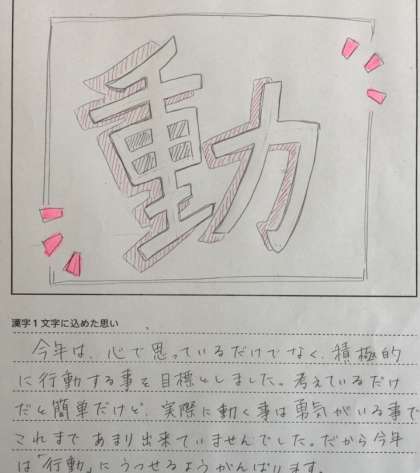 動
漢字1文字に込めた思い
今年は、心で思っているだけでなく、積極的
に行動する事を目標としました。考えているだけ
だと簡単だけど、実際に動く事は勇気がいる事で
これまであまり出来ていませんでした。だから今年
は「行動」にうつせるようがんばります。